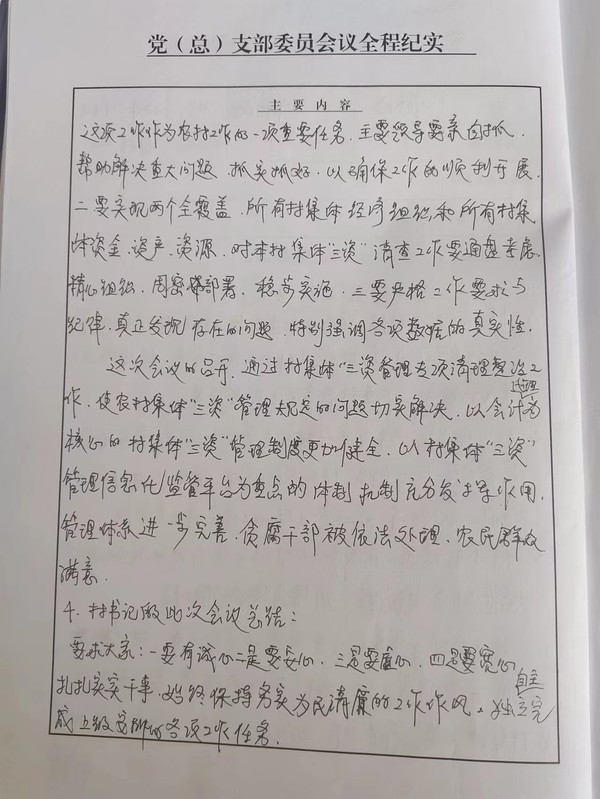 党（总）支部委员会议全程纪实
主要内容
这项工作作为农村工作的一项重要任务，主要领导要亲自抓，
帮助解决重大问题，抓实抓好，以确保工作的顺利开展。
二要实现两个全覆盖，所有村集体经济组织和所有村集
体资金、资产、资源，对本村集体“三资”清查工作要通盘考虑、
精心组织、周密部署，稳步实施，三要严格工作要求与
纪律，真正发现存在的问题，特别强调各项数据的真实性。
这次会议的召开，通过村集体“三资管理专项清理整治工
作，使农村集体“三资”管理大规定的问题切实解决，以会计为
核心的村集体“三资”管理制度更加健全，以村集体“三资”
管理信息化监管平台为重点的体制机制充分发挥作用，
管理体系进一步完善，贪腐干部被依法处理，农民群众
满意。
4、村书记做此次会议总结：
要求大家：一要有诚心二是要专心，三是要虚心，四是要宽心
扎扎实实干事，始终保持务实为民清廉的工作作风，独立自主完
成上级安排的各项工作任务。